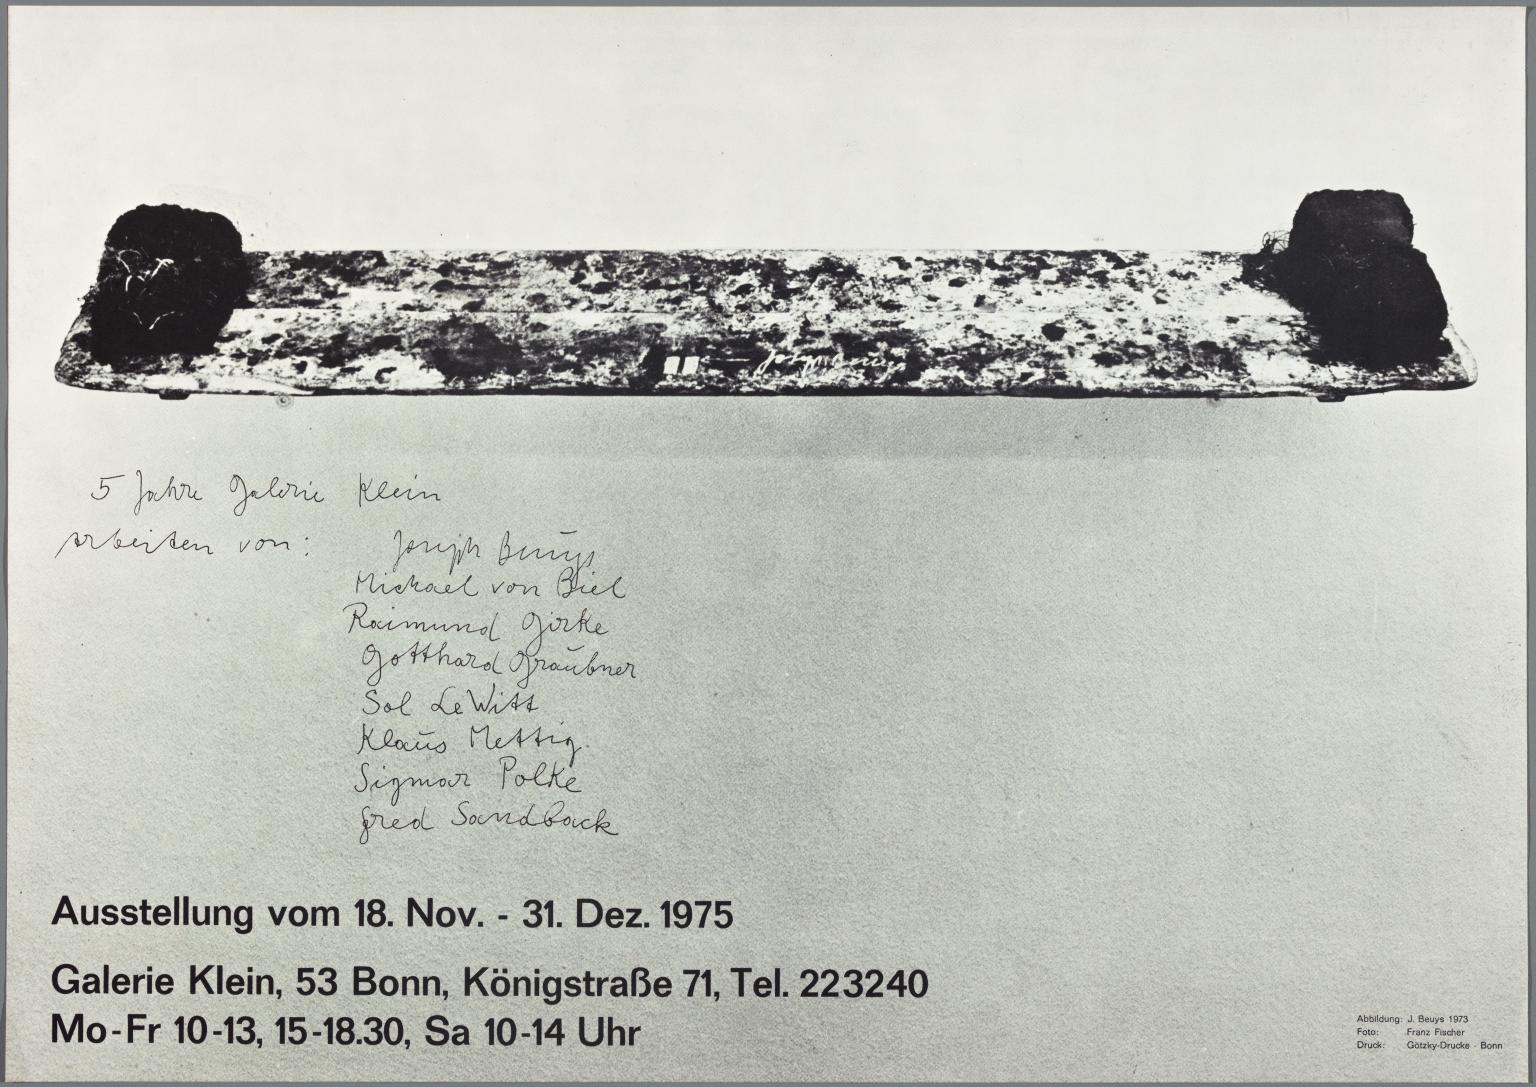 Joseph Beuys
5 Jahre Galerie Klein
Arbeiten von: Joseph Beuys
Michael von Biel
Raimund Girke
Gotthard Graubner
Sol LeWitt
Klaus Mettig
Sigmar Polke
Fred Sandback
Ausstellung vom 18. Nov. - 31. Dez. 1975
Galerie Klein, 53 Bonn, Königstraße 71, Tel. 223240
Mo-Fr 10-13, 15-18.30, Sa 10-14 Uhr
Abbildung: J. Beuys 1973
Foto: Franz Fischer
Druck: Götzky-Drucke - Bonn